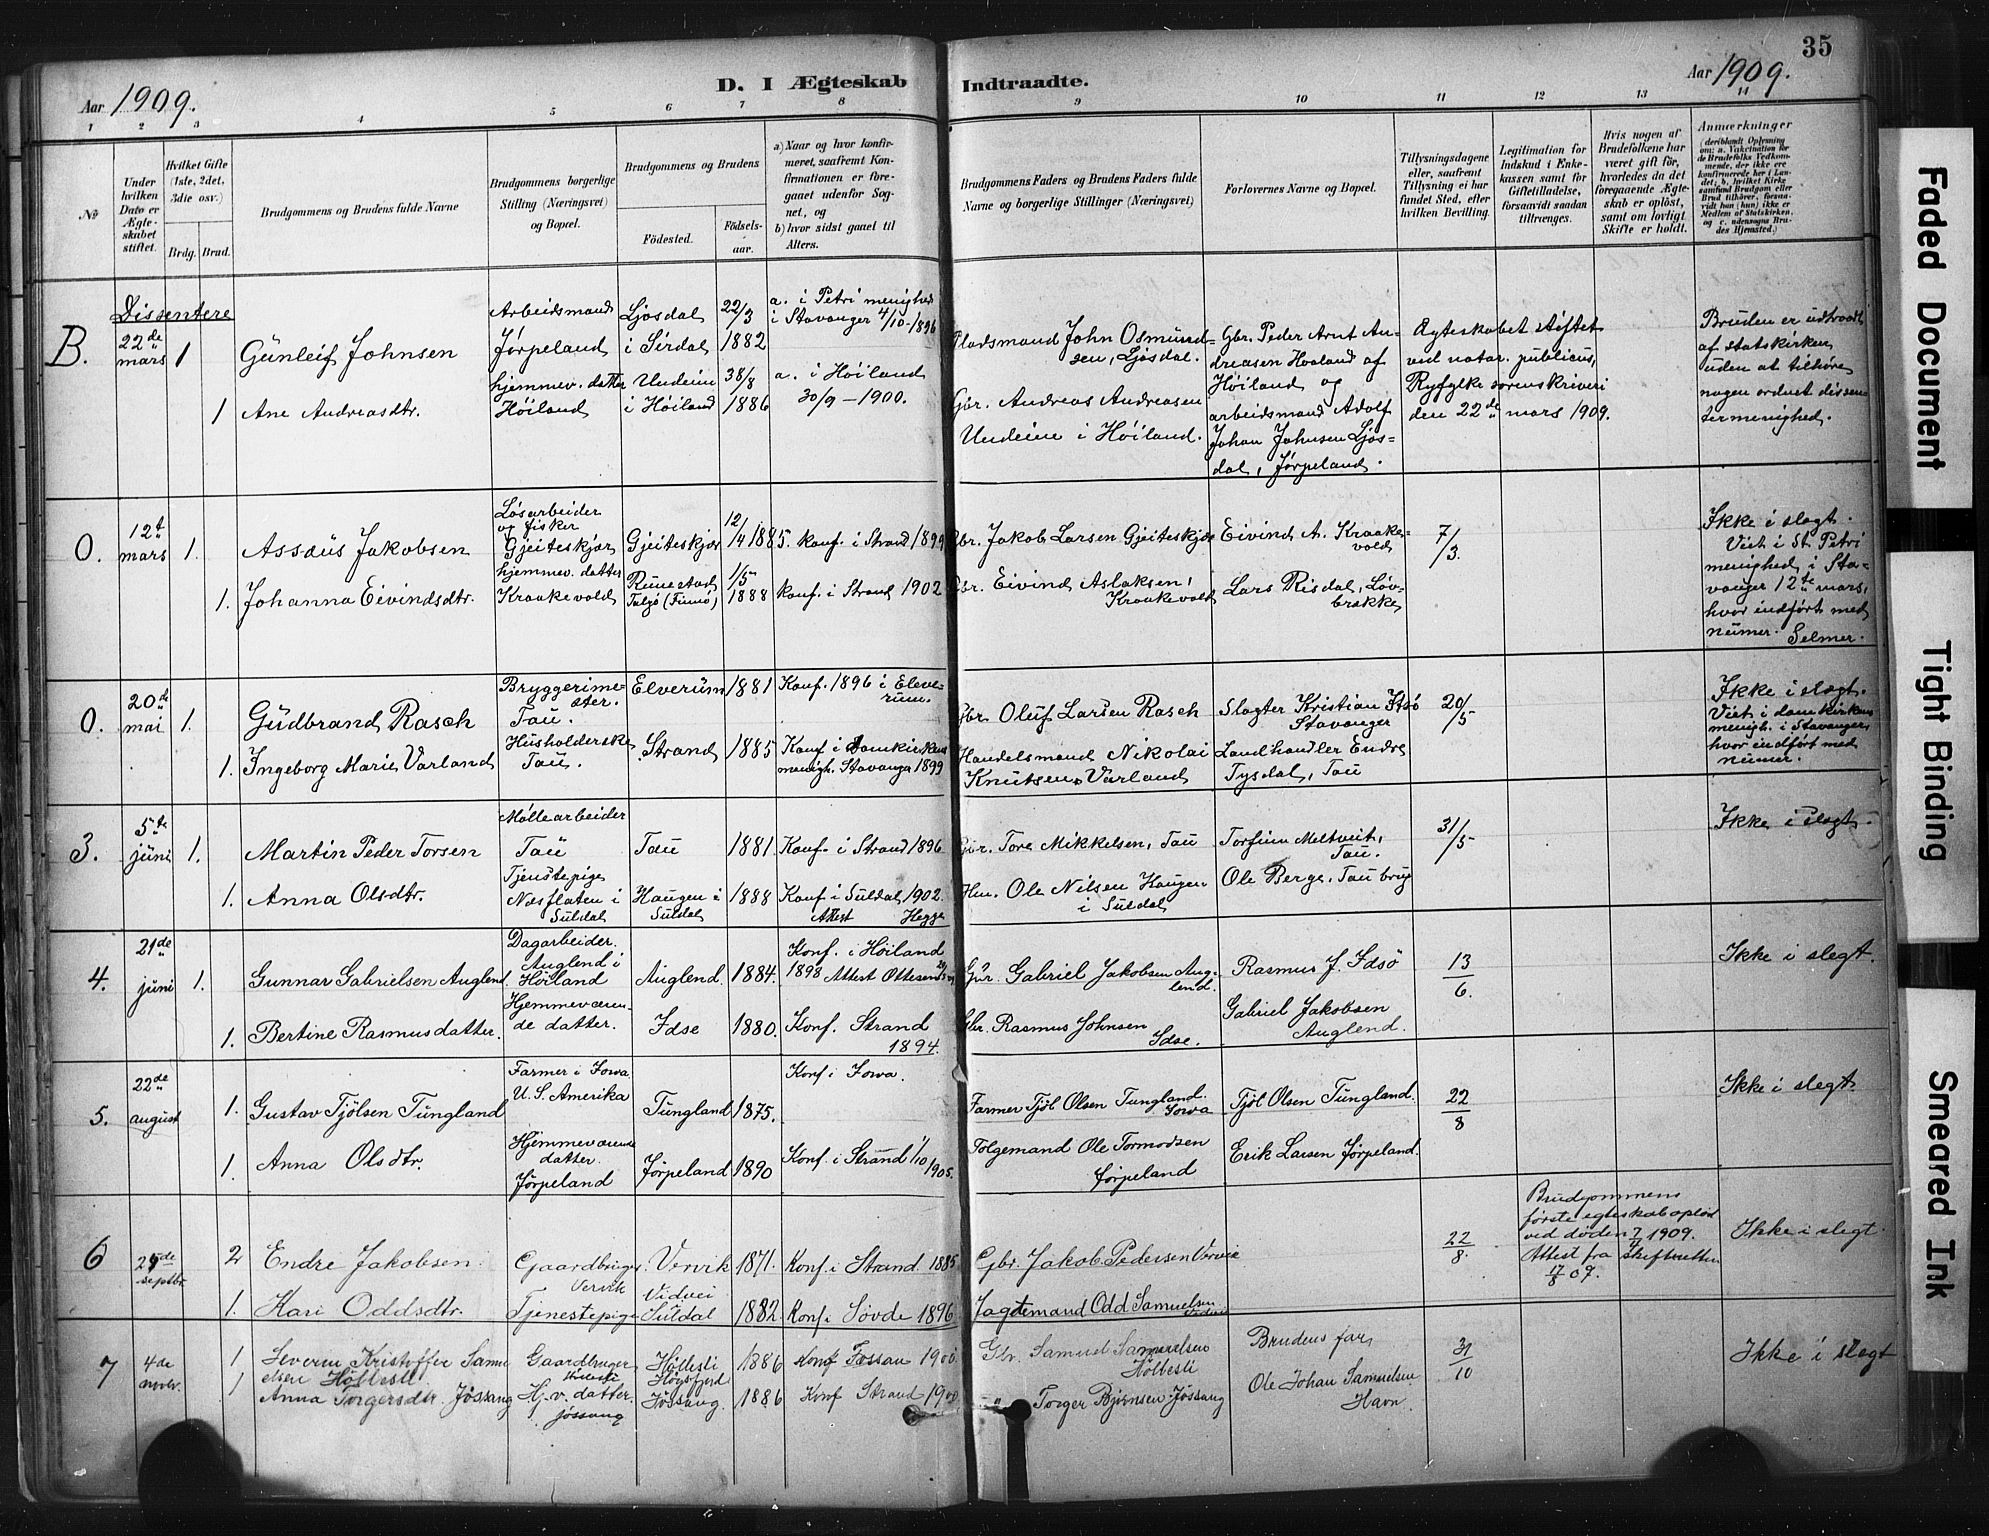 35
D. I Ægteskab Indtraadte.
Aar 1909.
Aar 1909.
1 2 3 4 5 6 7 8 9 10 11 12 13 14
No
Under hvilken Dato er Ægteskabet stiftet.
Hvilket Gifte (1ste, 2det, 3die osv.)
Brdg. Brud.
Brudgommens og Brudens fulde Navne
Brudgommens borgerlige Stilling (Næringsvei) og Bopæl.
Brudgommens og Brudens
Fødested.
Fødselsaar.
a) Naar og hvor konfirmeret, saafremt Konfirmationen er foregaaet udenfor Sognet, og
b) hvor sidst gaaet til Alters.
Brudgommens Faders og Brudens Faders fulde Navne og borgerlige Stillinger (Næringsvei)
Forlovernes Navne og Bopæl.
Tillysningsdagene eller, saafremt Tillysning ei har fundet Sted, efter hvilken Bevilling.
Legitimation for Indskud i Enkekassen samt for Giftetilladelse, forsaavidt saadan tiltrænges.
Hvis nogen af Brudefolkene har været gift før, hvorledes da det foregaaende Ægteskab er opløst, samt om lovligt Skifte er holdt.
Anmærkninger
(deriblandt Oplysning om: a. Vakcination for de Brudefolks Vedkommende, der ikke ere konfirmerede her i Landet; b. hvilket Kirkesamfund Brudgom eller Brud tilhører, forsaavidt han (hun) ikke er Medlem af Statskirken, og c. udensogns Brudes Hjemsted.)
Dissentere
B. 22de mars 1 Gunleif Johnsen
Arbeidsmand Jørpeland
Ljosdal i Sirdal
22/3 1882
a. i Petri menighed i Stavanger 4/10-1896
Pladsmand John Osmundsen, Ljosdal.
Gbr. Peder Arnt Andreasen Hoiland af Høiland og
arbeidsmand Adolf Johan Johnsen Ljosdal, Jørpeland.
Ægteskabet stiftet ved notar. publicus, Ryfylke sorenskriveri den 22de mars 1909.
Bruden er udtraadt af statskirken, uden at tilhøre nogen ordnet dissentermenighed.
1 Ane Andreasdtr.
hjemmev. datter Høiland
Undeim i Høiland
38/8 1886
a. i Høiland 30/9-1900.
Gbr. Andreas Andreasen Undeim i Høiland.
O. 12t mars 1. Assaüs Jakobsen
Løsarbeider og fisker Gjeiteskjær
Gjeiteskjær
12/4 1885.
konf. i Strand 1899
Gbr. Jakob Larsen Gjeiteskjær
Eivind A. Kraakevold
7/3.
Ikke i slegt.
Viet i St. Petri menighed i Stavanger 12te mars, hvor indført med numer. Selmer.
1. Johanna Eivindsdtr.
hjemmev. datter Kraakevold
Runestad Talgø (Finnø)
1/5 1888
konf. i Strand 1902
Gbr. Eivind Aslaksen, Kraakevold
Lars Risdal, Løvbrække
O. 20de mai 1. Gudbrand Rasch
Bryggerimester. Tau.
Elverum 1881
Konf. 1896 i Eleverum.
Gbr. Oluf Larsen Rasch
Slagter Kristian Idsø Stavanger
20/5
Ikke i slegt.
Viet i domkirkens menigh. i Stavanger, hvor indført med numer.
1. Ingeborg Marie Varland
Husholderske Tau.
Strand 1885
Konf i Domkirkens menigh. Stavanger 1899
Handelsmand Nikolai Knutsen Varland
Landhandler Endre Tysdal, Tau
3. 5te juni 1. Martin Peder Torsen
Møllearbeider Tau
Tau 1881.
Konf. i Strand 1896
Gbr. Tore Mikkelsen, Tau
Torfinn Meltveit, Tau.
31/5
Ikke i slegt.
1. Anna Olsdtr.
Tjenstepige Næsflaten i Suldal
Haugen i Suldal 1888
Konf i Suldal 1902. Attest Hegge
Hm. Ole Nilsen Haugen i Suldal
Ole Berge, Tau brug
4. 21de juni 1. Gunnar Gabrielsen Auglend.
Dagarbeider. Auglend i Høiland
Auglend. 1884.
Konf. i Høiland 1898 Attest Ottesen
Gbr. Gabriel Jakobsen Auglend.
Rasmus J. Idsö
13/6.
Ikke i slegt.
1. Bertine Rasmusdatter.
Hjemmeværende datter.
Idse 1880.
Konf. Strand 1894.
Gbr. Rasmus Johnsen Idse.
Gabriel Jakobsen Auglend.
5. 22de august 1. Gustav Tjølsen Tungland
Farmer i Iowa U. S. Amerika
Tungland 1875.
Konf i Iowa.
Farmer Tjøl Olsen Tungland. Iowa
Tjøl Olsen Tungland.
22/8
Ikke i slegt
1. Anna Olsdtr.
Hjemmeværende datter. Jørpeland
Jørpeland 1890
Konf. i Strand 1/10 1905.
Følgemand Ole Tormodsen Jørpeland
Erik Larsen Jørpeland.
6 septbr 2 Endre Jakobsen.
Gaardbruger. Vervik
Vervik 1871.
Konf. i Strand 1885.
Gbr. Jakob Pedersen Vervik
22/8.
Brudgommens første egteskab opløst ved døden 7/4 1909. Attest fra skifteretten 17/8 09.
Ikke i slegt.
1. Kari Oddsdtr.
Tjenestepige
Vidvei Suldal 1882
Konf. i Sövde 1896.
Jagtemand Odd Samuelsen Vidvei
7 4de novbr. 1 Severin Kristoffer Samuelsen Høllesli
Gaardbruger Høllesli
Høllesli Høgsfjord 1886
Konf Fossan 1900.
Gbr. Samuel Samuelsen Høllesli
Brudens far,
31/10
Ikke i slegt
1 Anna Torgersdtr. Jøssang
Hj. v. datter. Jøssang
Jøssang. 1886
Konf Strand 1900
" Torger Bjørnsen Jøssang
Ole Johan Samuelsen Havn.
Faded Document
Tight Binding
Smeared Ink